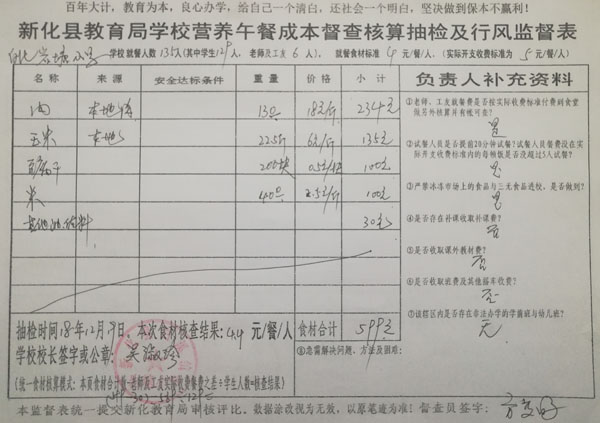 百年大计，教育为本，良心办学，给自己一个清白，还社会一个明白，坚决做到保本不赢利！
新化县教育局学校营养午餐成本督查核算抽检及行风监督表
学校就餐人数135人(其中学生129人，老师及工友6人)，就餐食材标准4元/餐/人。(实际开支收费标准为5元/餐/人)
名称 来源 安全达标条件 重量 价格 小计 负责人补充资料
肉 本地 13 18元/斤 234元
玉米 本地 22.5斤 6元/斤 135元
干 200块 0.5元 100元
米 40 2.5元/斤 100元
其他 料 30元
①老师、工友就餐费是否按实际收费标准付到食堂做另外核算并有帐可查？
是
②试餐人员是否提前20分钟试餐？试餐人员餐费没在实际开支收费标准内的每桶饭是否没超过5人试餐？
是
③严禁冰冻市场上的食品与三无食品进校，是否做到？
是
④是否存在补课收取补课费？
否
⑤是否收取课外教材费？
否
⑥是否收取班费及其他搭车收费？
否
⑦该辖区内是否存在非法办学的学前班与幼儿班？
无
抽检时间18年12月 日，本次食材核查结果：4.4元/餐/人 食材合计 599元
学校校长签字或公章： ⑧急需解决问题、方法及困难：
(统一食材核算模式：本页食材合计数-老师及工友实际收费餐费之差÷学生人数=核查结果)
本监督表统一提交新化教育局审核评比。数据涂改视为无效，以原笔迹为准！督查员签字：